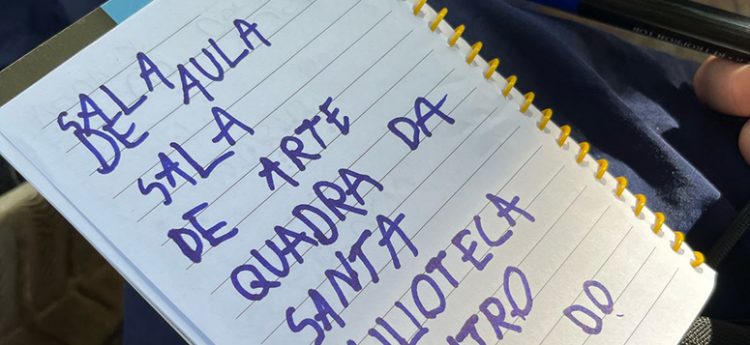 SALA
DE AULA
SALA
DE ARTE
QUADRA DA
SANTA
LIOTECA
NTRO DO